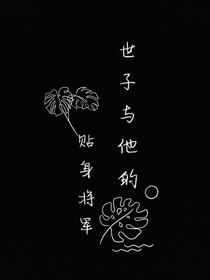 世子与他的
贴身将军